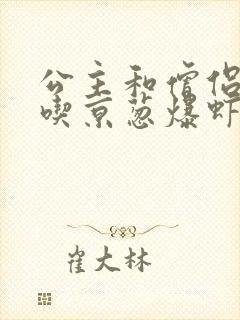 公主和僧侣
喫京葱爆虾
崔大林